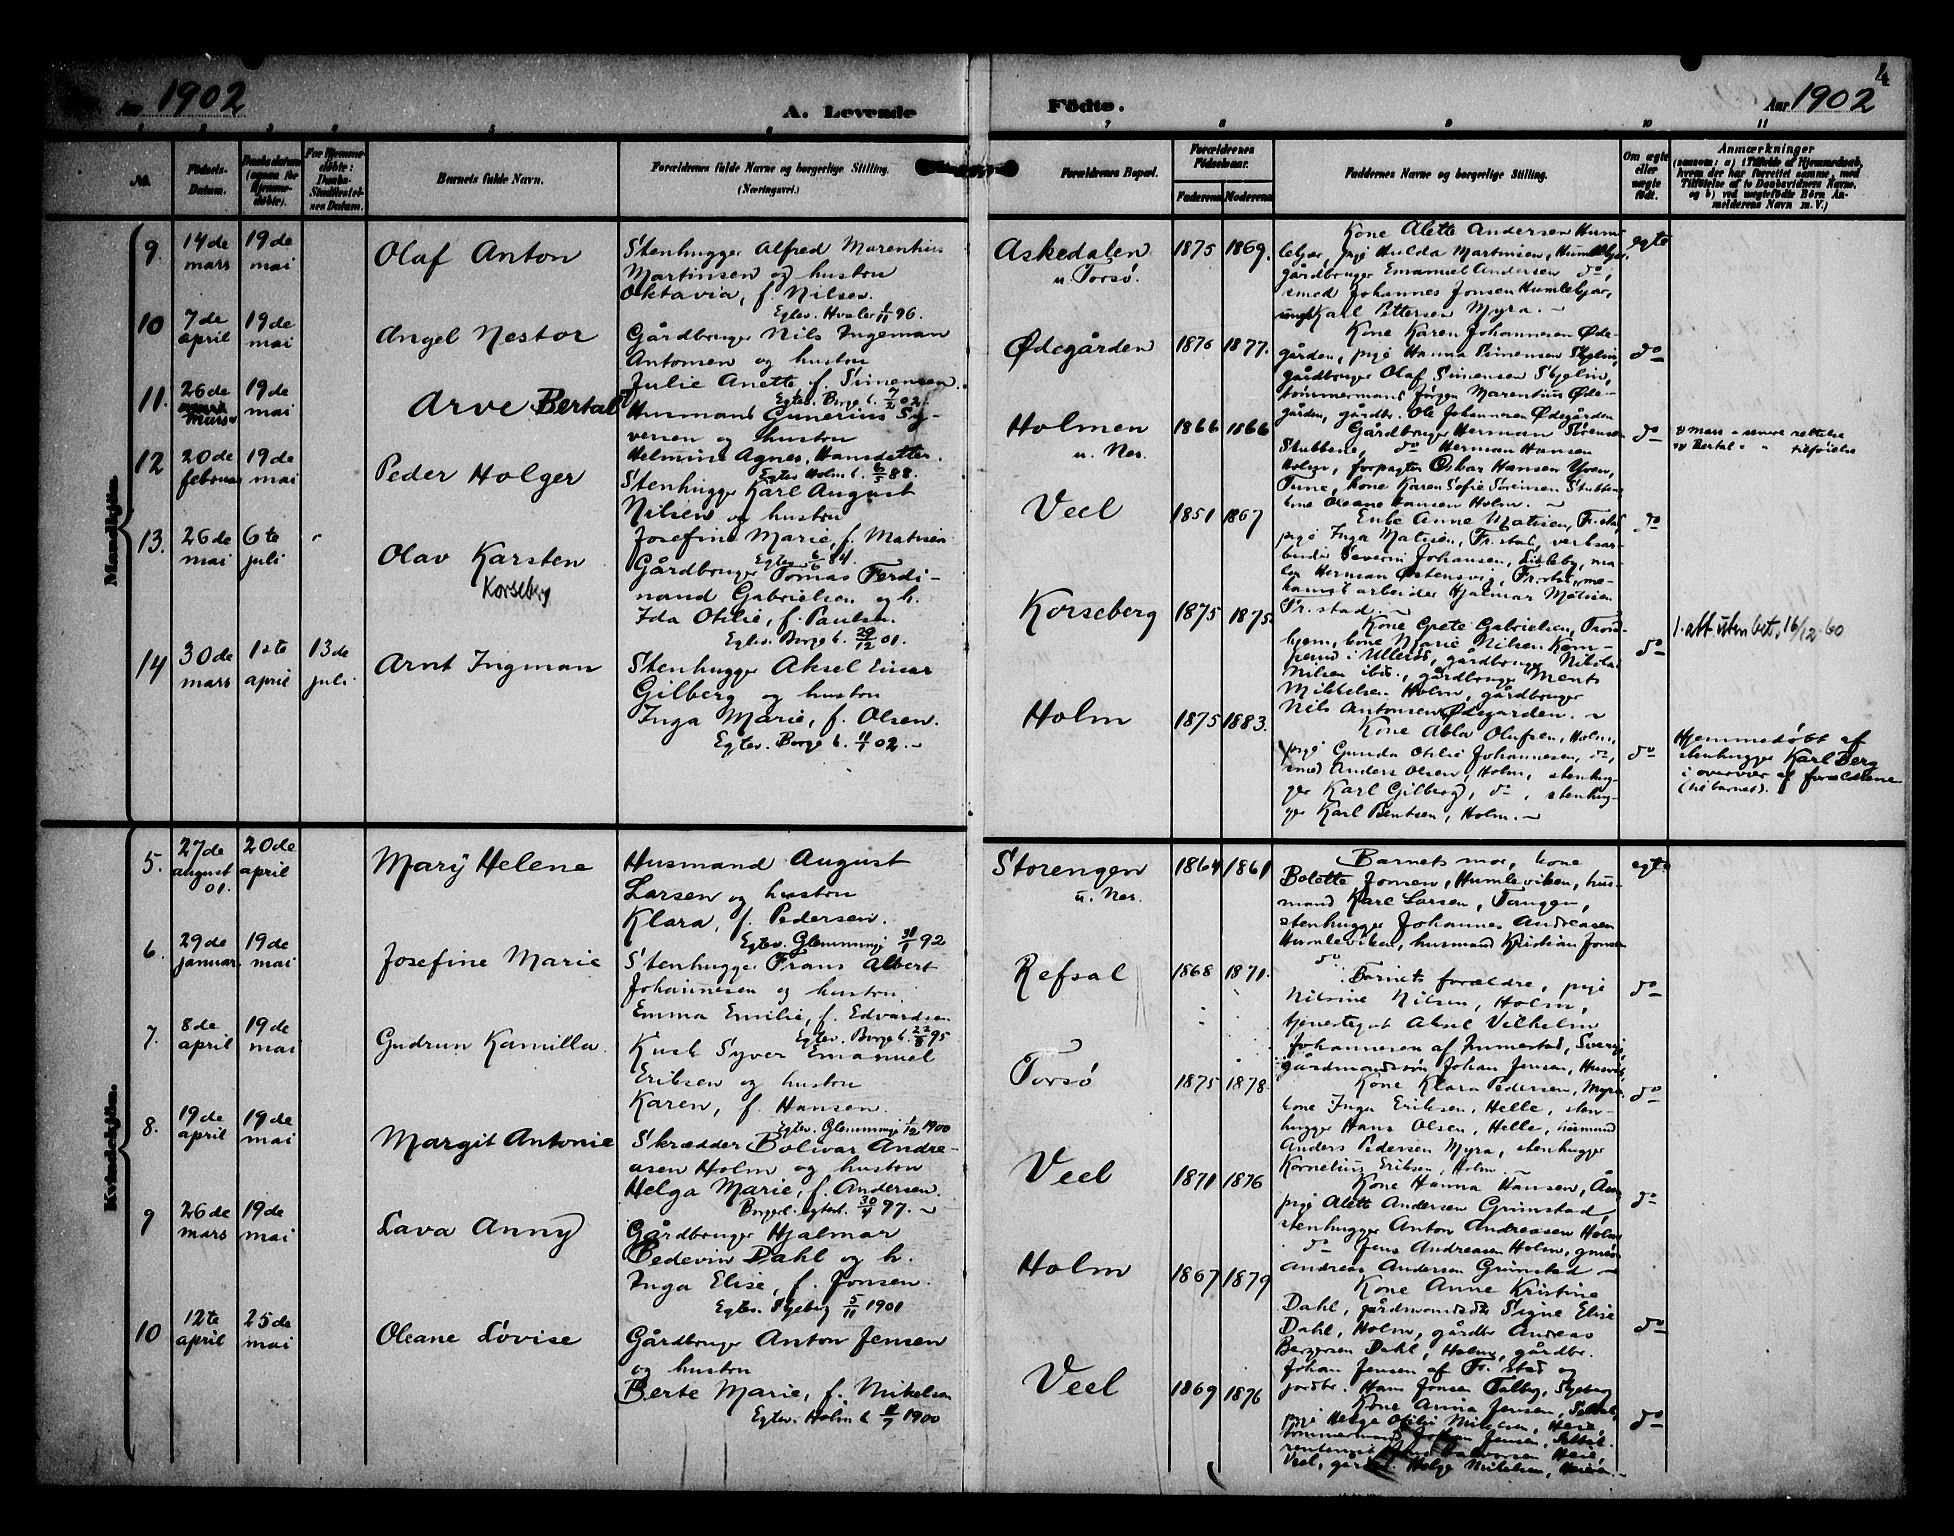 4
Aar 1902
A. Levende
Födte.
Aar 1902
1 2 3 4 5 6 7 8 9 10 11
No.
Födsels-
Datum.
Daabsdatum
(ogsaa for
Hjemme-
döbte).
For Hjemme-
döbte:
Daabs-
Stadfæstel-
sen Datum.
Barnets fulde Navn.
Forældrenes fulde Navne og borgerlige Stilling.
(Næringsvei.)
Forældrenes Bopæl.
Forældrenes
Födselsaar.
Faderens Moderens
Faddernes Navne og borgerlige Stilling.
Om ægte
eller
uægte
födt.
Anmærkninger
(saasom: a) i Tilfælde af Hjemmedaab,
hvem der har forrettet samme, med
Tilföielse af to Daabsvidners Navne,
og b) ved uægtefödte Börn An-
melderens Navn m. V.)
Mandkjön.
9.
14de
mars
19de
mai
Olaf Anton
Stenhugger Alfred Marentius
Martinsen og hustru
Oktavia, f. Nilsen.
Egtev. Hvaler 1/11 96.
Askedalen
u. Torsö.
1875 1869.
Kone Alette Andersen Humle-
bejær, pige Hulda Martinsen, Humlebejær,
gårdbruger Emanuel Andersen do,
smed Johannes Jonsen Humlebejær,
ungk. Karl Pettersen Myra. —
egte
10
7de
april
19de
mai
Angel Nestor
Gårdbruger Nils Ingeman
Antonsen og hustru
Julie Anette, f. Simensen.
Egtev. Borge k. 7/2 02.
Ødegården
1876 1877.
Kone Karen Johannesen Øde-
gården, pige Hanna Simensen
gårdbruger Olaf Simensen
tömmermand Jörgen Marentius Øde-
gården, gårdbr. Ole Johannesen Ødegården
do
11.
26de
mars
19de
mai
Arve Bertal
Husmand Gunerius Sy-
versen og hustru
Helmine Agnes, Hansdatter.
Egtev. Holm k. 6/5 88.
Holmen
u. Nes.
1866 1866
Gårdbruger Herman Sörensen
Stubbene, do Herman Hansen
Holm, forpagter Oskar Hansen Yven,
Tune, kone Karen Sofie Sörensen Stubbene,
Oleane Hansen Holm. —
do
mars - senere rettelse
Bertal " " tilföielse
12
20de
februar
19de
mai
Peder Holger
Stenhugger Karl August
Nilsen og hustru
Josefine Marie, f. Matisen
Egtev. 6/6 84.
Veel
1851 1867
Enke Anne Matisen, Fr.stad,
pige Inga Matisen, Fr.stad, verksar-
beider Severin Johansen, Lisleby, ma-
ler Herman Östensvig, Fr.stad, me-
kanisk arbeider Hjalmar Matisen
Fr.stad. —
do
13.
26de
mai
6te
juli
Olav Karsten
Korseberg
Gårdbruger Tomas Ferdi-
nand Gabrielsen og h.
Ida Otilie, f. Paulsen.
Egtev. Borge k. 29/12 01.
Korseberg
1875 1875.
Kone Grete Gabrielsen,
kone Marie Nilsen Kom-
perud i Ulleröd, gårdbruger Nikolai
Nilsen ibid., gårdbruger Ments
Mikkelsen Holm, gårdbruger
Nils Antonsen Ødegården. —
do
1. att uten bet. 16/12-60
14
30de
mars
1ste
april
13de
juli
Arnt Ingman
Stenhugger Aksel Einar
Gilberg og hustru
Inga Marie, f. Olsen.
Egtev. Borge k. 11/1 02. —
Holm
1875 1883.
Kone Olufsen, Holm,
pige Gunda Otilie Johannesen, do,
smed Anders Olsen, Holm, stenhug-
ger Karl Gilberg, do, stenhug-
ger Karl Bentsen, Holm. —
do
Hjemmedöbt af
stenhugger Karl Berg
i overvær af forældrene
(til barnet).
Kvindekjön.
5.
27de
august
01.
20de
april
Mary Helene
Husmand August
Larsen og hustru
Klara, f. Pedersen.
Egtev. Glemminge 31/1 92
Storengen
u. Nes.
1864 1861
Barnets mor, kone
Bolette Jonsen, Humleviken, hus-
mand Karl Larsen, Tangen,
stenhugger Johannes Andreasen
Humleviken, husmand Kristian Jonsen
do
egte
6.
29de
januar.
19de
mai
Josefine Marie
Stenhugger Frans Albert
Johannesen og hustru
Emma Emilie, f. Edvardsen
Egtev. Borge k. 22/5 95
Refsal
1868 1871.
Barnets forældre, pige
Nilsine Nilsen, Holm,
tjenestegut Aksel Vilhelm
Johannesen af Immestad, Sverige,
gårdmandssön Johan Jensen,
do
7.
8de
april
19de
mai
Gudrun Kamilla
Kusk Syver Emanuel
Eriksen og hustru
Karen, f. Hansen.
Egtev. Glemminge 1/12 1900
Torsö
1875 1878.
Kone Klara Pedersen, Myra,
kone Inga Eriksen, Helle, sten-
hugger Hans Olsen, Helle, husmand
Anders Pedersen Myra, stenhugger
Kornelius Eriksen, Holm. —
do
8.
19de
april
19de
mai
Margit Antonie
Skrædder Bolivar Andre-
asen Holm og hustru
Helga Marie, f. Andersen.
Borgerl. egted. 30/4 97. —
Veel
1871 1876
Kone Hanna Hansen,
pige Alette Andersen Grimstad,
stenhugger Anton Andreasen Holm
do Jens Andreasen Holm,
Andreas Andersen Grimstad —
do
9
26de
mars
19de
mai
Lava Anny
Gårdbruger Hjalmar
Bedevin Dahl og h.
Inga Elise, f. Jonsen.
Egtev. Skjeberg 5/11 1901
Holm
1867 1879
Kone Anne Kristine
Dahl, gårdmandsdtr Signe Elise
Dahl, Holm, gårdbr Andreas
Bergersen Dahl, Holm, gårdbr.
Johan Jensen af Fr.stad og
jordbr. Hans Jonsen Talberg, Skjeberg
do
10
12te
april
25de
mai
Oleane Lovise
Gårdbruger Anton Jensen
og hustru
Berte Marie, f. Mikelsen
Egtev. Holm k 11/7 1900
Veel
1869 1876
Kone Anna Jensen,
pige Helga Otilie Mikelsen,
tömmermand Johan Jensen,
Veel, gårdbr. Helge Mikelsen,
do